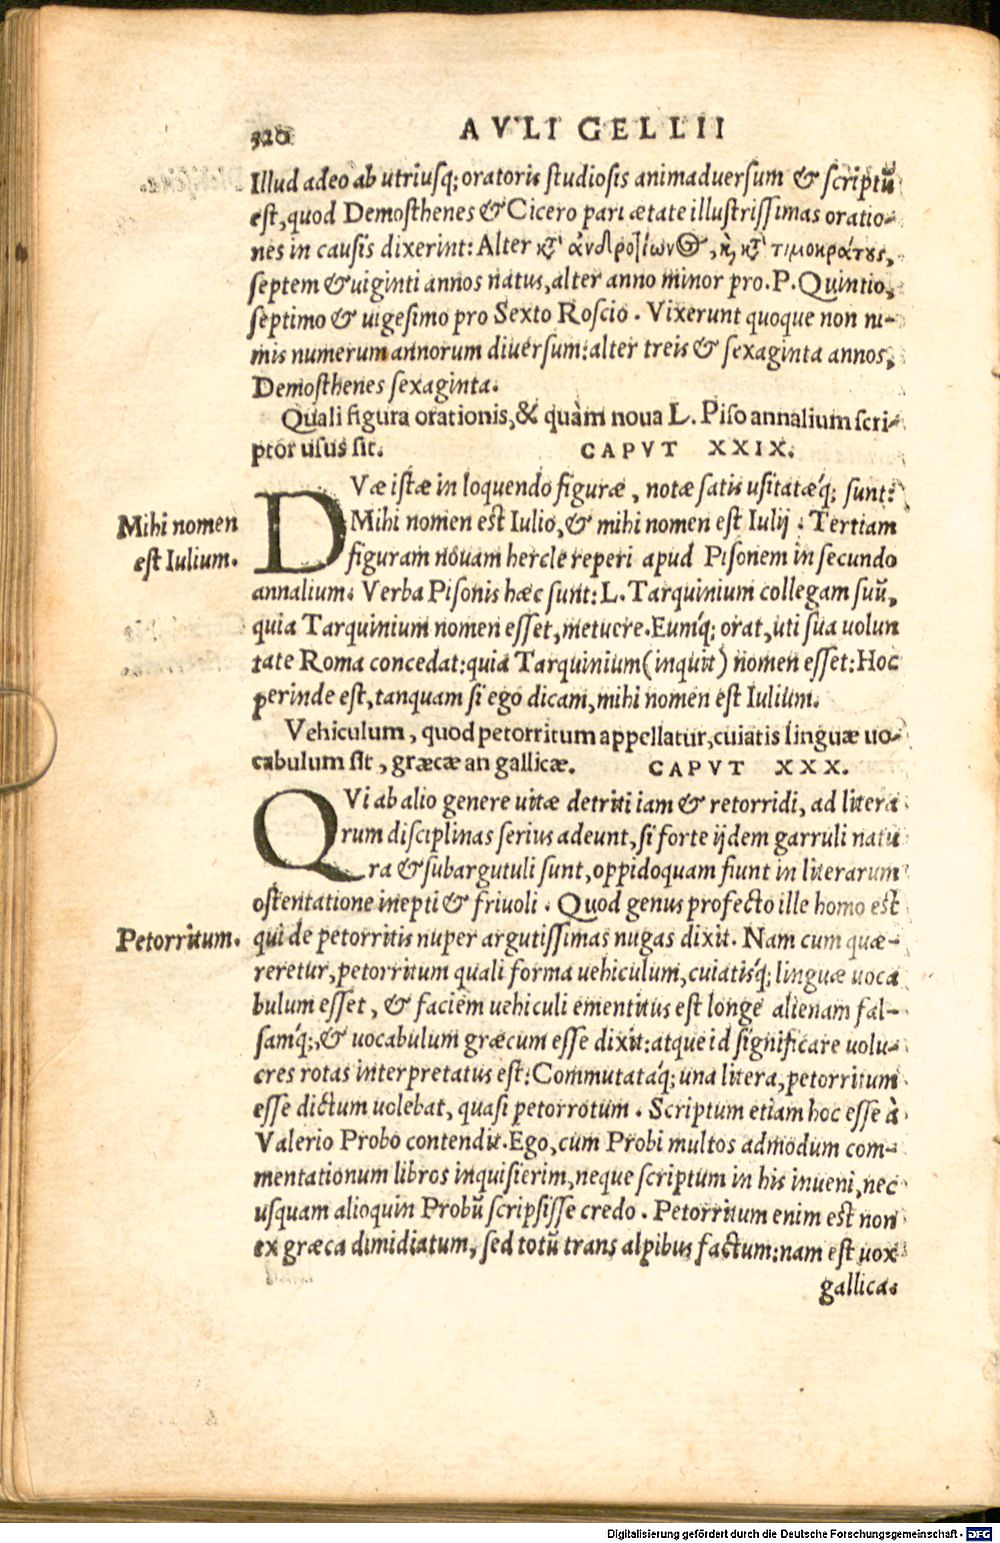 320 AVLI GELLII
Illud adeo ab utriusq; oratoris studiosis animaduersum & scriptũ
est, quod Demosthenes & Cicero pari ætate illustrissimas oratio-
nes in causis dixerint: Alter κτ̀ ἀνδροτίωνος, κỳ κτ̀ τιμοκράτους,
septem & uiginti annos natus, alter anno minor pro. P. Quintio,
septimo & uigesimo pro Sexto Roscio. Vixerunt quoque non ni-
mis numerum annorum diuersum: alter treis & sexaginta annos,
Demosthenes sexaginta.
Quali figura orationis, & quàm noua L. Piso annalium scri-
ptor usus sit. CAPVT XXIX.
DVæ istæ in loquendo figuræ, notæ satis usitatæq́; sunt:
Mihi nomen est Iulio, & mihi nomen est Iulij. Tertiam
Mihi nomen
est Iulium.
figuram nouam hercle reperi apud Pisonem in secundo
annalium. Verba Pisonis hæc sunt: L. Tarquinium collegam suũ,
quia Tarquinium nomen esset, metuere. Eumq́; orat, uti sua uolun
tate Roma concedat: quia Tarquinium (inquit) nomen esset: Hoc
perinde est, tanquam si ego dicam, mihi nomen est Iulium.
Vehiculum, quod petorritum appellatur, cuiatis linguæ uo-
cabulum sit, græcæ an gallicæ. CAPVT XXX.
QVi ab alio genere uitæ detriti iam & retorridi, ad litera
rum disciplinas serius adeunt, si forte ijdem garruli natu
ra & subargutuli sunt, oppidoquam fiunt in literarum
ostentatione inepti & friuoli. Quod genus profecto ille homo est
Petorritum.
qui de petorritis nuper argutissimas nugas dixit. Nam cum quæ-
reretur, petorritum quali forma uehiculum, cuiatisq́; linguæ uoca
bulum esset, & faciem uehiculi ementitus est longe alienam fal-
samq́;, & uocabulum græcum esse dixit: atque id significare uolu-
cres rotas interpretatus est: Commutataq́; una litera, petorritum
esse dictum uolebat, quasi petorrotum. Scriptum etiam hoc esse à
Valerio Probo contendit. Ego, cum Probi multos admodum com-
mentationum libros inquisierim, neque scriptum in his inueni, nec
usquam alioquin Probũ scripsisse credo. Petorritum enim est non
ex græca dimidiatum, sed totũ trans alpibus factum: nam est uox
gallica.
Digitalisierung gefördert durch die Deutsche Forschungsgemeinschaft - DFG